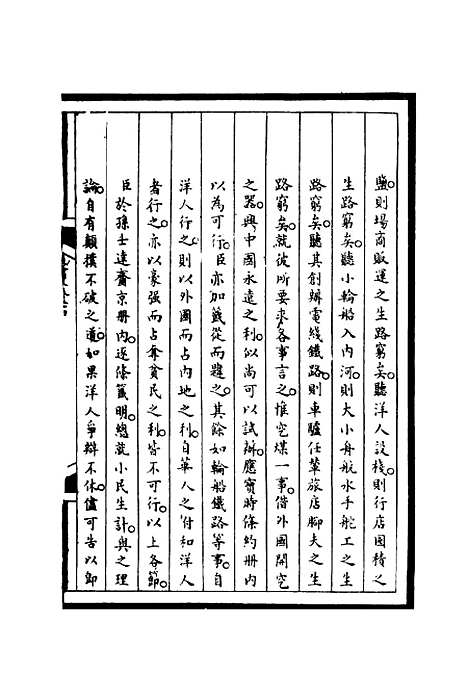 鹽。則場商販運之生路窮矣。聽洋人設棧。則行店囤積之
生路窮矣。聽小輪船入內河。則大小舟航水手舵工之生
路窮矣。聽其創辦電綫鐵路。則車驢任輦旅店腳夫之生
路窮矣。就彼所要求各事言之。惟挖煤一事。借外國開挖
之器。興中國永遠之利。似尚可以試辦。應寶時條約冊內
以為可行。臣亦加籤從而韙之。其餘如輪船鐵路等事。自
洋人行之。則以外國而占內地之利。自華人之附和洋人
者行之。亦以豪强而占奪貧民之利。皆不可行。以上各節。
臣於孫士達齎京冊內。逐條籤明。總就小民生計。與之理
論。自有顛撲不破之道。如果洋人爭辯不休。儘可告以卽